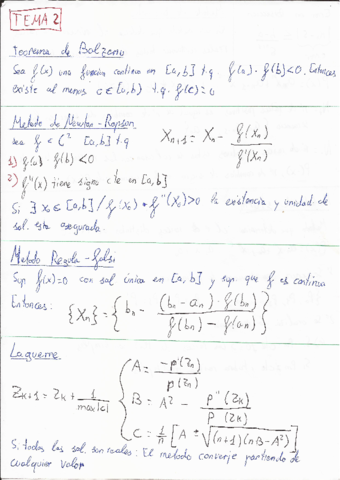 TEMA 2
Teorema de Bolzano
Sea f(x) una función continua en [a,b] t.q f(a)·f(b)<0. Entonces
existe al menos c∈[a,b) t.q. f(c)=0
Metodo de Newton-Rapson
sea f ∈ C² [a,b] t.q
X_{n+1} = X_n - f(x_n)/f'(x_n)
1) f(a)·f(b)<0
2) f''(x) tiene signo cte en [a,b]
Si ∃ x₀∈[a,b] / f(x₀)*f''(x₀)>0 la existencia y unidad de
sol. esta asegurada.
Metodo Regula-falsi
Sup f(x)=0 con sol única en [a,b] y sup. que f es continua
Entonces: {X_n} = { b_n - (b_n-a_n)·f(b_n) / (f(b_n)-f(a_n)) }
Laguerre
A = -p'(z_n)/p(z_n)
Z_{k+1} = Z_k + 1/max|c|
B = A² - p''(z_k)/p(z_k)
C = 1/n [A ± √((n+1)(nB-A²))]
Si todas las sol. son reales: El metodo converje partiendo de
cualquier valor